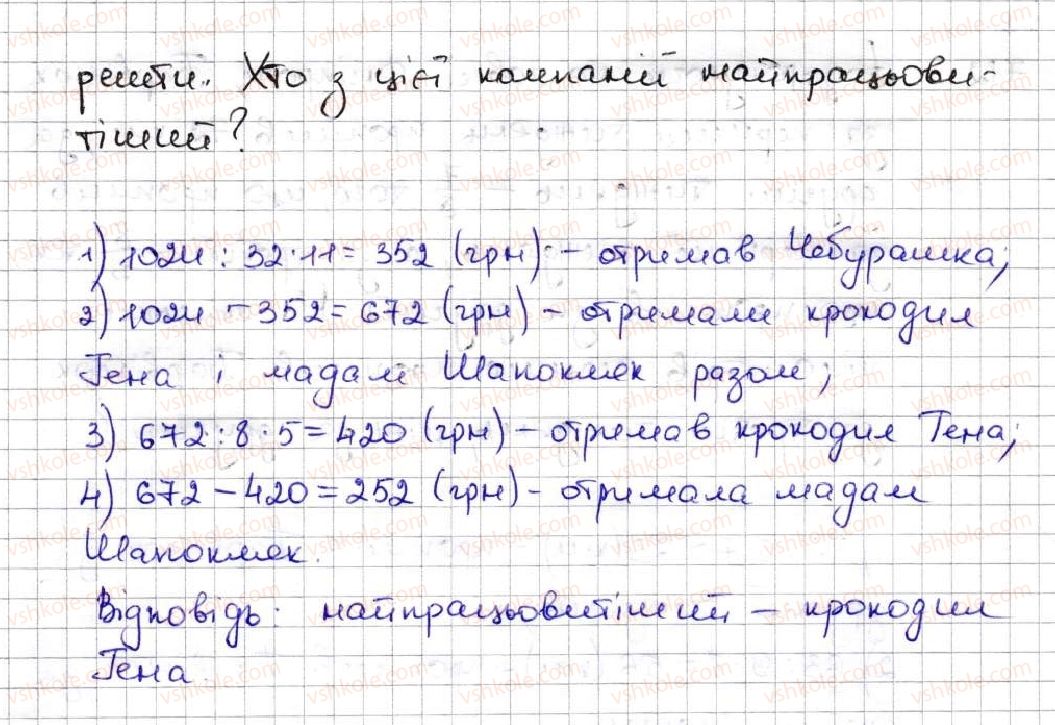 решти. Хто з цієї компанії найпрацьови-
тіший?
1) 1024 : 32 · 11 = 352 (грн) - отримав Чебурашка;
2) 1024 - 352 = 672 (грн) - отримали крокодил
Гена і мадам Шапокляк разом;
3) 672 : 8 · 5 = 420 (грн) - отримав крокодил Гена;
4) 672 - 420 = 252 (грн) - отримала мадам
Шапокляк.
Відповідь: найпрацьовитіший - крокодил
Гена